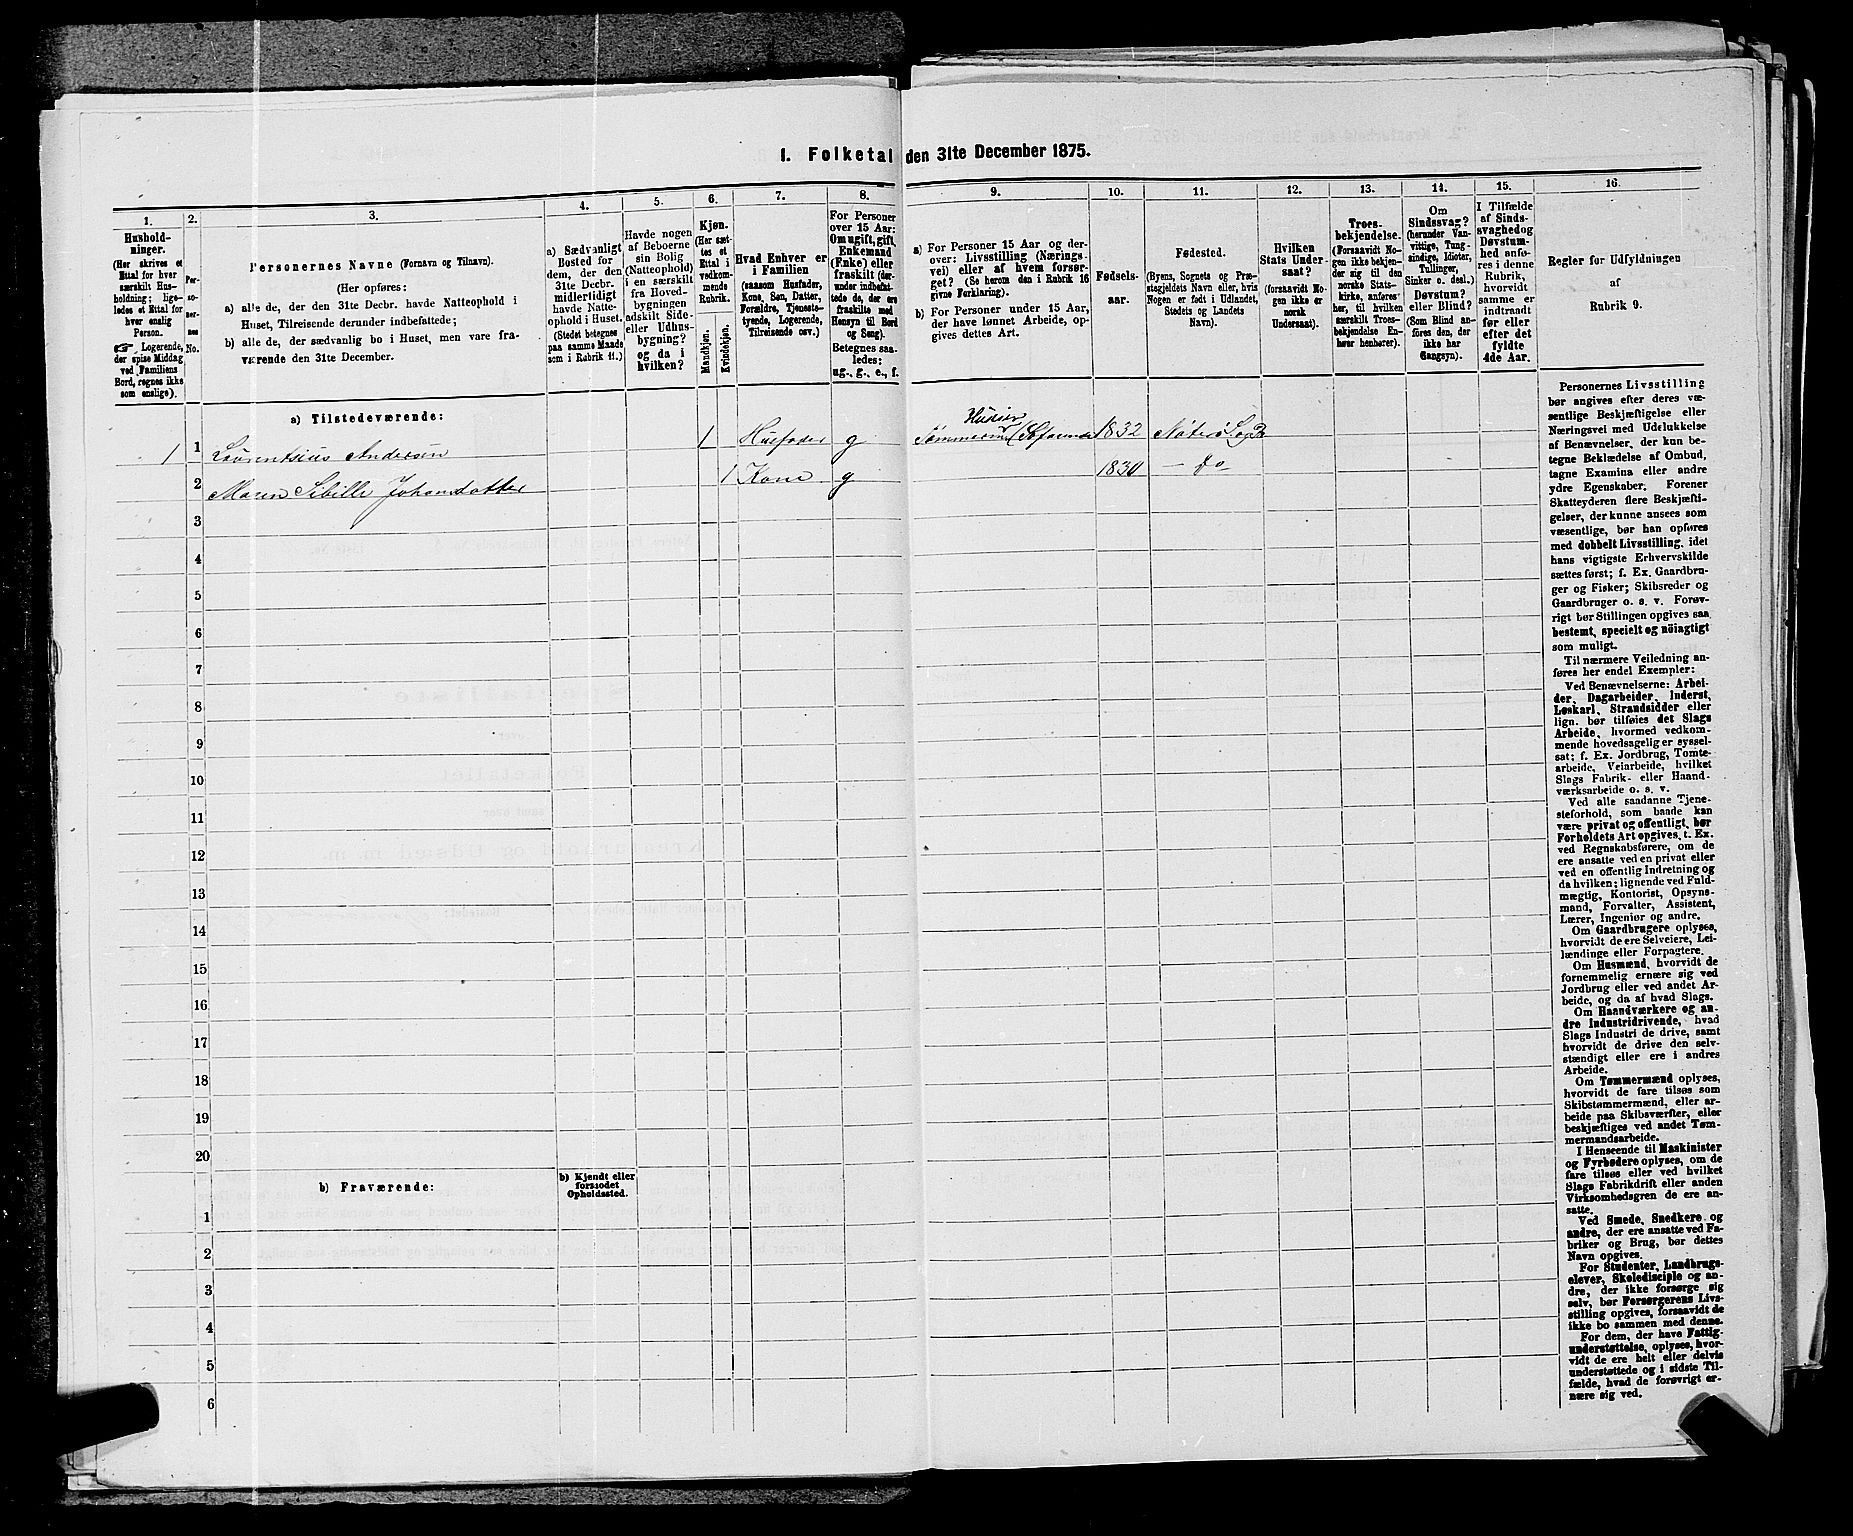 I. Folketal den 31te December 1875.
1.
2.
3.
4.
5.
6.
7.
8.
9.
10.
11.
12.
13.
14.
15.
16.
Hushold-
ninger.
(Her skrives et
Ettal for hver
særskilt Hus-
holdning; lige-
ledes et Ettal for
hver enslig
Person.
☞ Logerende,
der spise Middag
ved Familiens
Bord, regnes ikke
som enslige).
Per-
so-
ner-
nes
No.
Personernes Navne (Fornavn og Tilnavn).
(Her opføres:
a) alle de, der den 31te Decbr. havde Natteophold i
Huset, Tilreisende derunder indbefattede;
b) alle de, der sædvanlig bo i Huset, men vare fra-
værende den 31te December.
a) Sædvanligt
Bosted for
dem, der den
31te Decbr.
midlertidigt
havde Natte-
ophold i Huset.
(Stedet betegnes
paa samme Maade
som i Rubrik 11.)
Havde nogen
af Beboerne
sin Bolig
(Natteophold)
i en særskilt
fra Hoved-
bygningen
adskilt Side-
eller Udhus-
bygning?
og da i
hvilken?
Kjøn.
(Her sæt-
tes et
Ettal i
vedkom-
mende
Rubrik.
Mandkjøn.
Kvindekjøn.
Hvad Enhver er
i Familien
(saasom Husfader,
Kone, Søn, Datter,
Forældre, Tjeneste-
tyende, Logerende,
Tilreisende osv.)
For Personer
over 15 Aar:
Om ugift, gift,
Enkemand
(Enke) eller
fraskilt (der-
under indbefat-
tede de, der ere
fraskilte med
Hensyn til Bord
og Seng).
Betegnes saa-
ledes:
ug., g., e., f.
a) For Personer 15 Aar og der-
over: Livsstilling (Nærings-
vei) eller af hvem forsør-
get? (Se herom den i Rubrik 16
givne Forklaring).
b) For Personer under 15 Aar,
der have lønnet Arbeide, op-
gives dettes Art.
Fødsels-
aar.
Fødested.
(Byens, Sognets og Præ-
stegjeldets Navn eller, hvis
Nogen er født i Udlandet,
Stedets og Landets
Navn).
Hvilken
Stats Under-
saat?
(forsaavidt No-
gen ikke er
norsk
Undersaat).
Troes-
bekjendelse.
(Forsaavidt No-
gen ikke bekjen-
der sig til den
norske Stats-
kirke, anføres
her, til hvilken
særskilt Troes-
bekjendelse En-
hver henhører).
Om
Sindssvag?
(herunder Van-
vittige, Tung-
sindige, Idioter,
Tullinger,
Sinker o. desl.)
Døvstum?
eller Blind?
(Som Blind an-
føres den, der
ikke har
Gangsyn).
I Tilfælde
af Sinds-
svaghed og
Døvstum-
hed anfø-
res i denne
Rubrik,
hvorvidt
samme er
indtraadt
før eller
efter det
fyldte
4de Aar.
Regler for Udfyldningen
af
Rubrik 9.
a) Tilstedeværende:
1 1 Laurentsius Andersen 1 Husfader g 1832
2 Maren Sibille Johansdatter 1 Kone g 1830 — Do
3
4
5
6
7
8
9
10
11
12
13
14
15
16
17
18
19
20
b) Fraværende:
b) Kjendt eller
formodet
Opholdssted.
1
2
3
4
5
6
Personernes Livsstilling
bør angives efter deres væ-
sentlige Beskjæftigelse eller
Næringsvei med Udelukkelse
af Benævnelser, der kun be-
tegne Beklædelse af Ombud,
tagne Examina eller andre
ydre Egenskaber. Forener
Skatteyderen flere Beskjæfti-
gelser, der kunne ansees som
væsentlige, bør han opføres
med dobbelt Livsstilling, idet
hans vigtigste Erhvervskilde
sættes først; f. Ex. Gaardbru-
ger og Fisker; Skibsreder og
Gaardbruger o. s. v. Forøv-
rigt bør Stillingen opgives saa
bestemt, specielt og nöiagtigt
som muligt.
Til nærmere Veiledning an-
føres her endel Exempler:
Ved Benævnelserne: Arbei-
der, Dagarbeider, Inderst,
Løskarl, Strandsidder eller
lign. bør tilføies det Slags
Arbeide, hvormed vedkom-
mende hovedsagelig er syssel-
sat; f. Ex. Jordbrug, Tomte-
arbeide, Veiarbeide, hvilket
Slags Fabrik- eller Haand-
værksarbeide o. s. v.
Ved alle saadanne Tjene-
steforhold, som baade kan
være privat og offentligt, bør
Forholdets Art opgives, t. Ex.
ved Regnskabsførere, om de
ere ansatte ved en privat eller
ved en offentlig Indretning og
da hvilken; lignende ved Fuld-
mægtig, Kontorist, Opsyns-
mand, Forvalter, Assistent,
Lærer, Ingeniør og andre.
Om Gaardbrugere oplyses,
hvorvidt de ere Selveiere, Lei-
lændinge eller Forpagtere.
Om Husmænd, hvorvidt de
fornemmelig ernære sig ved
Jordbrug eller ved andet Ar-
beide, og da af hvad Slags.
Om Haandværkere og an-
dre Industridrivende, hvad
Slags Industri de drive, samt
hvorvidt de drive den selv-
stændigt eller ere i andres
Arbeide.
Om Tømmermænd oplyses,
hvorvidt de fare tilsøs som
Skibstømmermænd, eller ar-
beide paa Skibsværfter, eller
beskjæftiges ved andet Tøm-
mermandsarbeide.
I Henseende til Maskinister
og Fyrbødere oplyses, om de
fare tilsøs eller ved hvilket
Slags Fabrikdrift eller anden
Virksomhedsgren de ere an-
satte.
Ved Smede, Snedkere og
andre, der ere ansatte ved Fa-
briker og Brug, bør dettes
Navn opgives.
For Studenter, Landbrugs-
elever, Skoledisciple og an-
dre, der ikke forsørge sig
selv, bør Forsørgerens Livs-
stilling opgives, forsaavidt de
ikke bo sammen med denne.
For dem, der have Fattig-
understøttelse, oplyses, hvor-
vidt de ere helt eller delvis
understøttede og i sidste Til-
fælde, hvad de forøvrigt er-
nære sig ved.